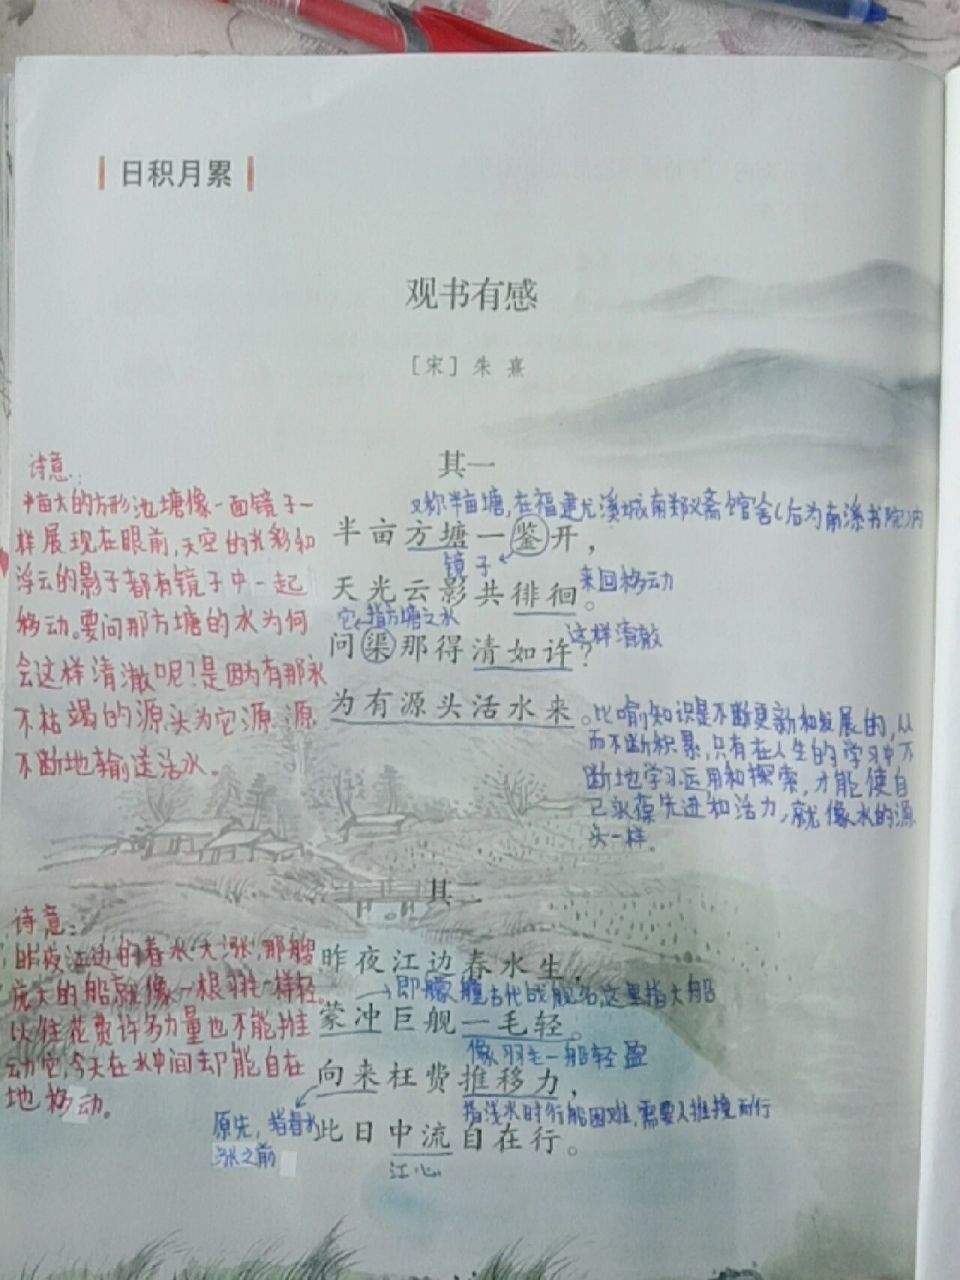 日积月累
观书有感
[宋] 朱熹
其一
诗意:
半亩大的方形池塘像一面镜子一
样展现在眼前,天空的光彩和
浮云的影子都有镜子中一起
移动。要问那方塘的水为何
会这样清澈呢?是因为有那永
不枯竭的源头为它源源
不断地输送活水。
又称半亩塘,在福建尤溪城南郑义斋馆舍(后为南溪书院)内
半亩方塘一鉴开,
镜子
天光云影共徘徊。
来回移动
它,指方塘之水
问渠那得清如许?
这样清澈
为有源头活水来。
比喻知识是不断更新和发展的,从
而不断积累,只有在人生的学习中不
断地学习运用和探索,才能使自
己永葆先进和活力,就像水的源
头一样。
其二
诗意:
昨夜江边的春水大涨,那艘
庞大的船就像一根羽毛一样轻。
以往花费许多力量也不能推
动它,今天在水中间却能自在
地移动。
昨夜江边春水生,
即艨艟古代战船名,这里指大船
蒙冲巨舰一毛轻。
像羽毛一般轻盈
向来枉费推移力,
指浅水时行船困难,需要人推挽而行
原先,指春水
涨之前
此日中流自在行。
江心